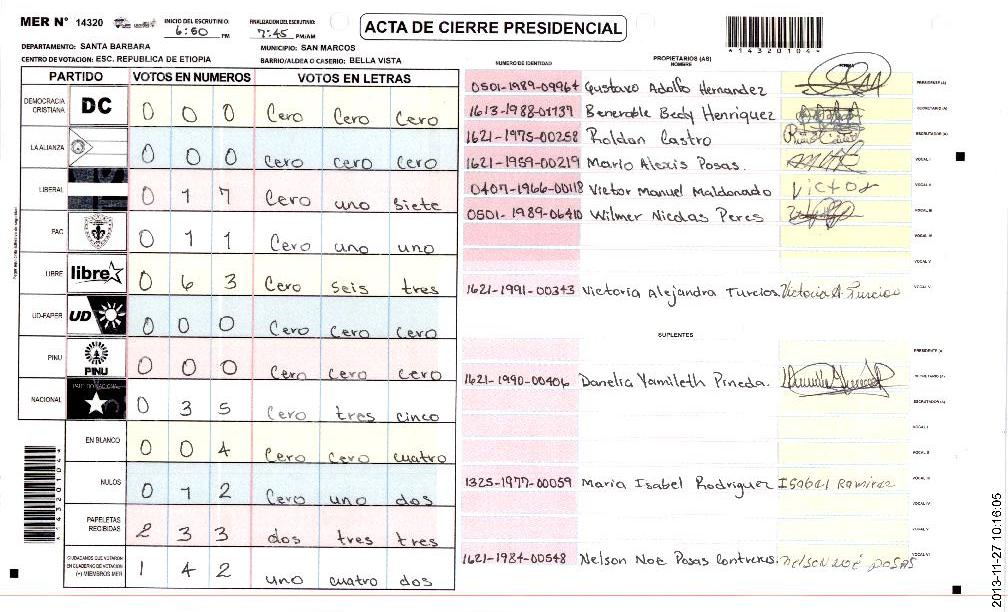 MER N° 14320
INICIO DEL ESCRUTINIO:
6:50 PM
FINALIZACION DEL ESCRUTINIO:
7:45 PM/AM
ACTA DE CIERRE PRESIDENCIAL
*14320104*
DEPARTAMENTO: SANTA BARBARA
MUNICIPIO: SAN MARCOS
CENTRO DE VOTACION: ESC. REPUBLICA DE ETIOPIA
BARRIO/ALDEA O CASERIO: BELLA VISTA
PARTIDO VOTOS EN NUMEROS VOTOS EN LETRAS
DEMOCRACIA CRISTIANA DC 0 0 0 Cero Cero Cero
LA ALIANZA 0 0 0 Cero cero cero
LIBERAL 0 1 7 Cero uno siete
PAC 0 1 1 Cero uno uno
LIBRE libre 0 6 3 Cero seis tres
UD-FAPER UD 0 0 0 Cero Cero Cero
PINU PINU 0 0 0 Cero cero cero
NACIONAL 0 3 5 Cero tres cinco
EN BLANCO 0 0 4 Cero Cero cuatro
NULOS 0 1 2 Cero uno dos
PAPELETAS RECIBIDAS 2 3 3 dos tres tres
CIUDADANOS QUE VOTARON EN CUADERNO DE VOTACION (+) MIEMBROS MER 1 4 2 uno cuatro dos
*14320104*
PROPIETARIOS (AS)
NUMERO DE IDENTIDAD NOMBRE FIRMA
0501-1989-09964 Gustavo Adolfo Hernandez PRESIDENTE (A)
1613-1988-01737 Benerable Bedy Henriquez SECRETARIO (A)
1621-1975-00258 Roldan Castro ESCRUTADOR (A)
1621-1959-00219 Mario Alexis Posas VOCAL I
0407-1966-00118 Victor Manuel Maldonado Victor VOCAL II
0501-1989-06410 Wilmer Nicolas Peres VOCAL III
VOCAL IV
VOCAL V
1621-1991-00343 Victoria Alejandra Turcios. Victoria A Turcios
SUPLENTES
PRESIDENTE (A)
1621-1990-00406 Danelia Yamileth Pineda. SECRETARIO (A)
ESCRUTADOR (A)
VOCAL I
VOCAL II
1325-1977-00059 Maria Isabel Rodriguez Isabel Ramirez VOCAL III
VOCAL IV
VOCAL V
1621-1984-00548 Nelson Noe Posas Contreras. nelson noe posas VOCAL VI
2013-11-27 10:16:05